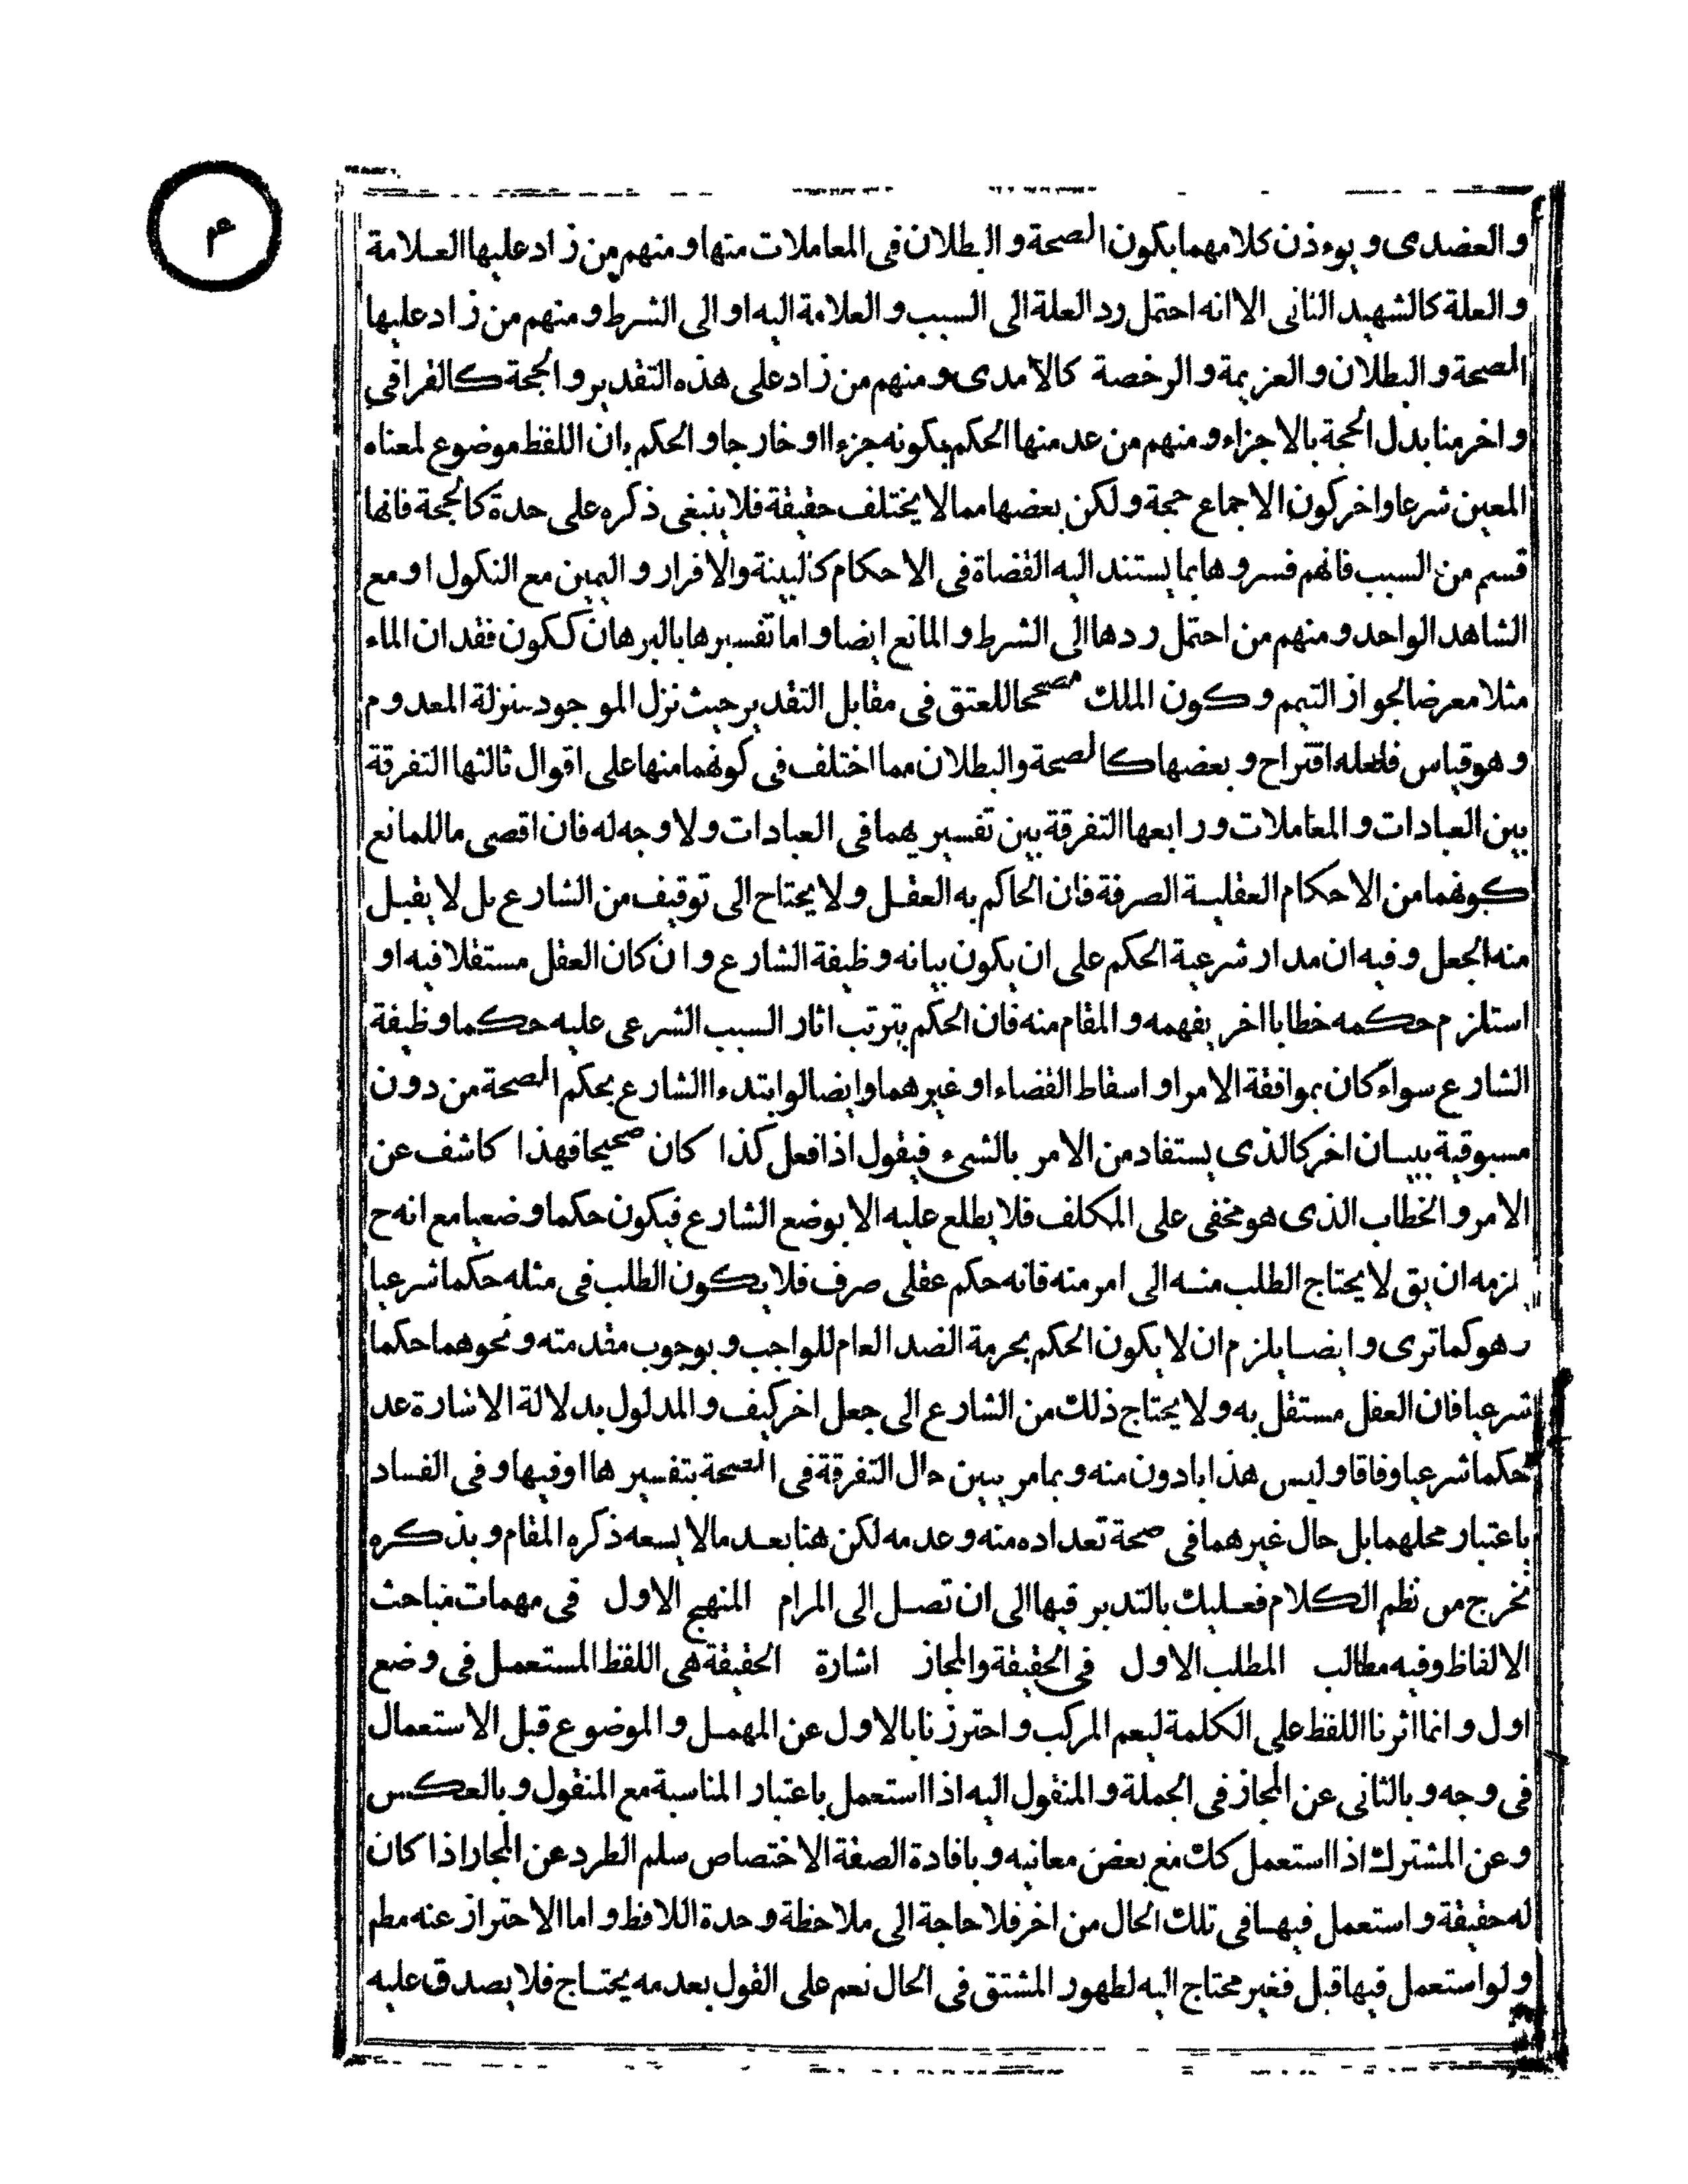 م
والعضدى ويوءذن كلامهما بكون الصحة والبطلان فى المعاملات منها ومنهم من زاد عليها العلامة
والعلة كالشهيد الثانى الا انه احتمل رد العلة الى السبب والعلامة اليه او الى الشرط ومنهم من زاد عليها
الصحة والبطلان والعزيمة والرخصة كالامدى ومنهم من زاد على هذه التقدير والحجة كالقرافي
واخر منا بدل الحجة بالاجزاء ومنهم من عد منها الحكم بكونه جزءا او خارجا والحكم بان اللفظ موضوع لمعناه
المعين شرعا واخر كون الاجماع حجة ولكن بعضها مما لا يختلف حقيقة فلا ينبغى ذكره على حدة كالحجة فانها
قسم من السبب فانهم فسروها بما يستند اليه القضاة فى الاحكام كالبينة والاقرار واليمين مع النكول او مع
الشاهد الواحد ومنهم من احتمل ردها الى الشرط والمانع ايضا واما تفسيرها بالبرهان ككون فقدان الماء
مثلا معرضا لجواز التيمم وكون الملك مصححا للعتق فى مقابل التقدير حيث نزل الموجود منزلة المعدوم
وهو قياس فلعله اقتراح وبعضها كالصحة والبطلان مما اختلف فى كونهما منها على اقوال ثالثها التفرقة
بين العبادات والمعاملات ورابعها التفرقة بين تفسيريهما فى العبادات ولا وجه له فان اقصى ما للمانع
كونهما من الاحكام العقلية الصرفة فان الحاكم به العقل ولا يحتاج الى توقيف من الشارع بل لا يقبل
منه الجعل وفيه ان مدار شرعية الحكم على ان يكون بيانه وظيفة الشارع وان كان العقل مستقلا فيه او
استلزم حكمه خطابا اخر يفهمه والمقام منه فان الحكم بترتب اثار السبب الشرعى عليه حكما وظيفة
الشارع سواء كان بموافقة الامر او اسقاط القضاء او غيرهما وايضا لو ابتدءا الشارع بحكم الصحة من دون
مسبوقية ببيان اخر كالذى يستفاد من الامر بالشىء فيقول اذا فعل كذا كان صحيحا فهذا كاشف عن
الامر والخطاب الذى هو مخفى على المكلف فلا يطلع عليه الا بوضع الشارع فيكون حكما وضعيا مع انه ح
لزمه ان يق لا يحتاج الطلب منه الى امر منه فانه حكم عقلى صرف فلا يكون الطلب فى مثله حكما شرعيا
وهو كما ترى وايضا يلزم ان لا يكون الحكم بحرمة الضد العام للواجب وبوجوب مقدمته ونحوهما حكما
شرعيا فان العقل مستقل به ولا يحتاج ذلك من الشارع الى جعل اخر كيف والمدلول بدلالة الاشارة عد
حكما شرعيا وفاقا وليس هذا بادون منه وبما مر يبين حال التفرقة فى الصحة بتفسيرها او فيها وفى الفساد
باعتبار محلهما بل حال غيرهما فى صحة تعداده منه وعدمه لكن هنا بعد ما لا يسعه ذكره المقام وبذكره
نخرج من نظم الكلام فعليك بالتدبر فيها الى ان تصل الى المرام المنهج الاول فى مهمات مباحث
الالفاظ وفيه مطالب المطلب الاول فى الحقيقة والمجاز اشارة الحقيقة هى اللفظ المستعمل فى وضع
اول وانما اثرنا اللفظ على الكلمة ليعم المركب واحترزنا بالاول عن المهمل والموضوع قبل الاستعمال
فى وجه وبالثانى عن المجاز فى الجملة والمنقول اليه اذا استعمل باعتبار المناسبة مع المنقول وبالعكس
وعن المشترك اذا استعمل كك مع بعض معانيه وبافادة الصفة الاختصاص سلم الطرد عن المجاز اذا كان
له حقيقة واستعمل فيها فى تلك الحال من اخر فلا حاجة الى ملاحظة وحدة اللافظ واما الاحتراز عنه مطم
ولو استعمل فيها قبل فغير محتاج اليه لظهور المشتق فى الحال نعم على القول بعدمه يحتاج فلا يصدق عليه